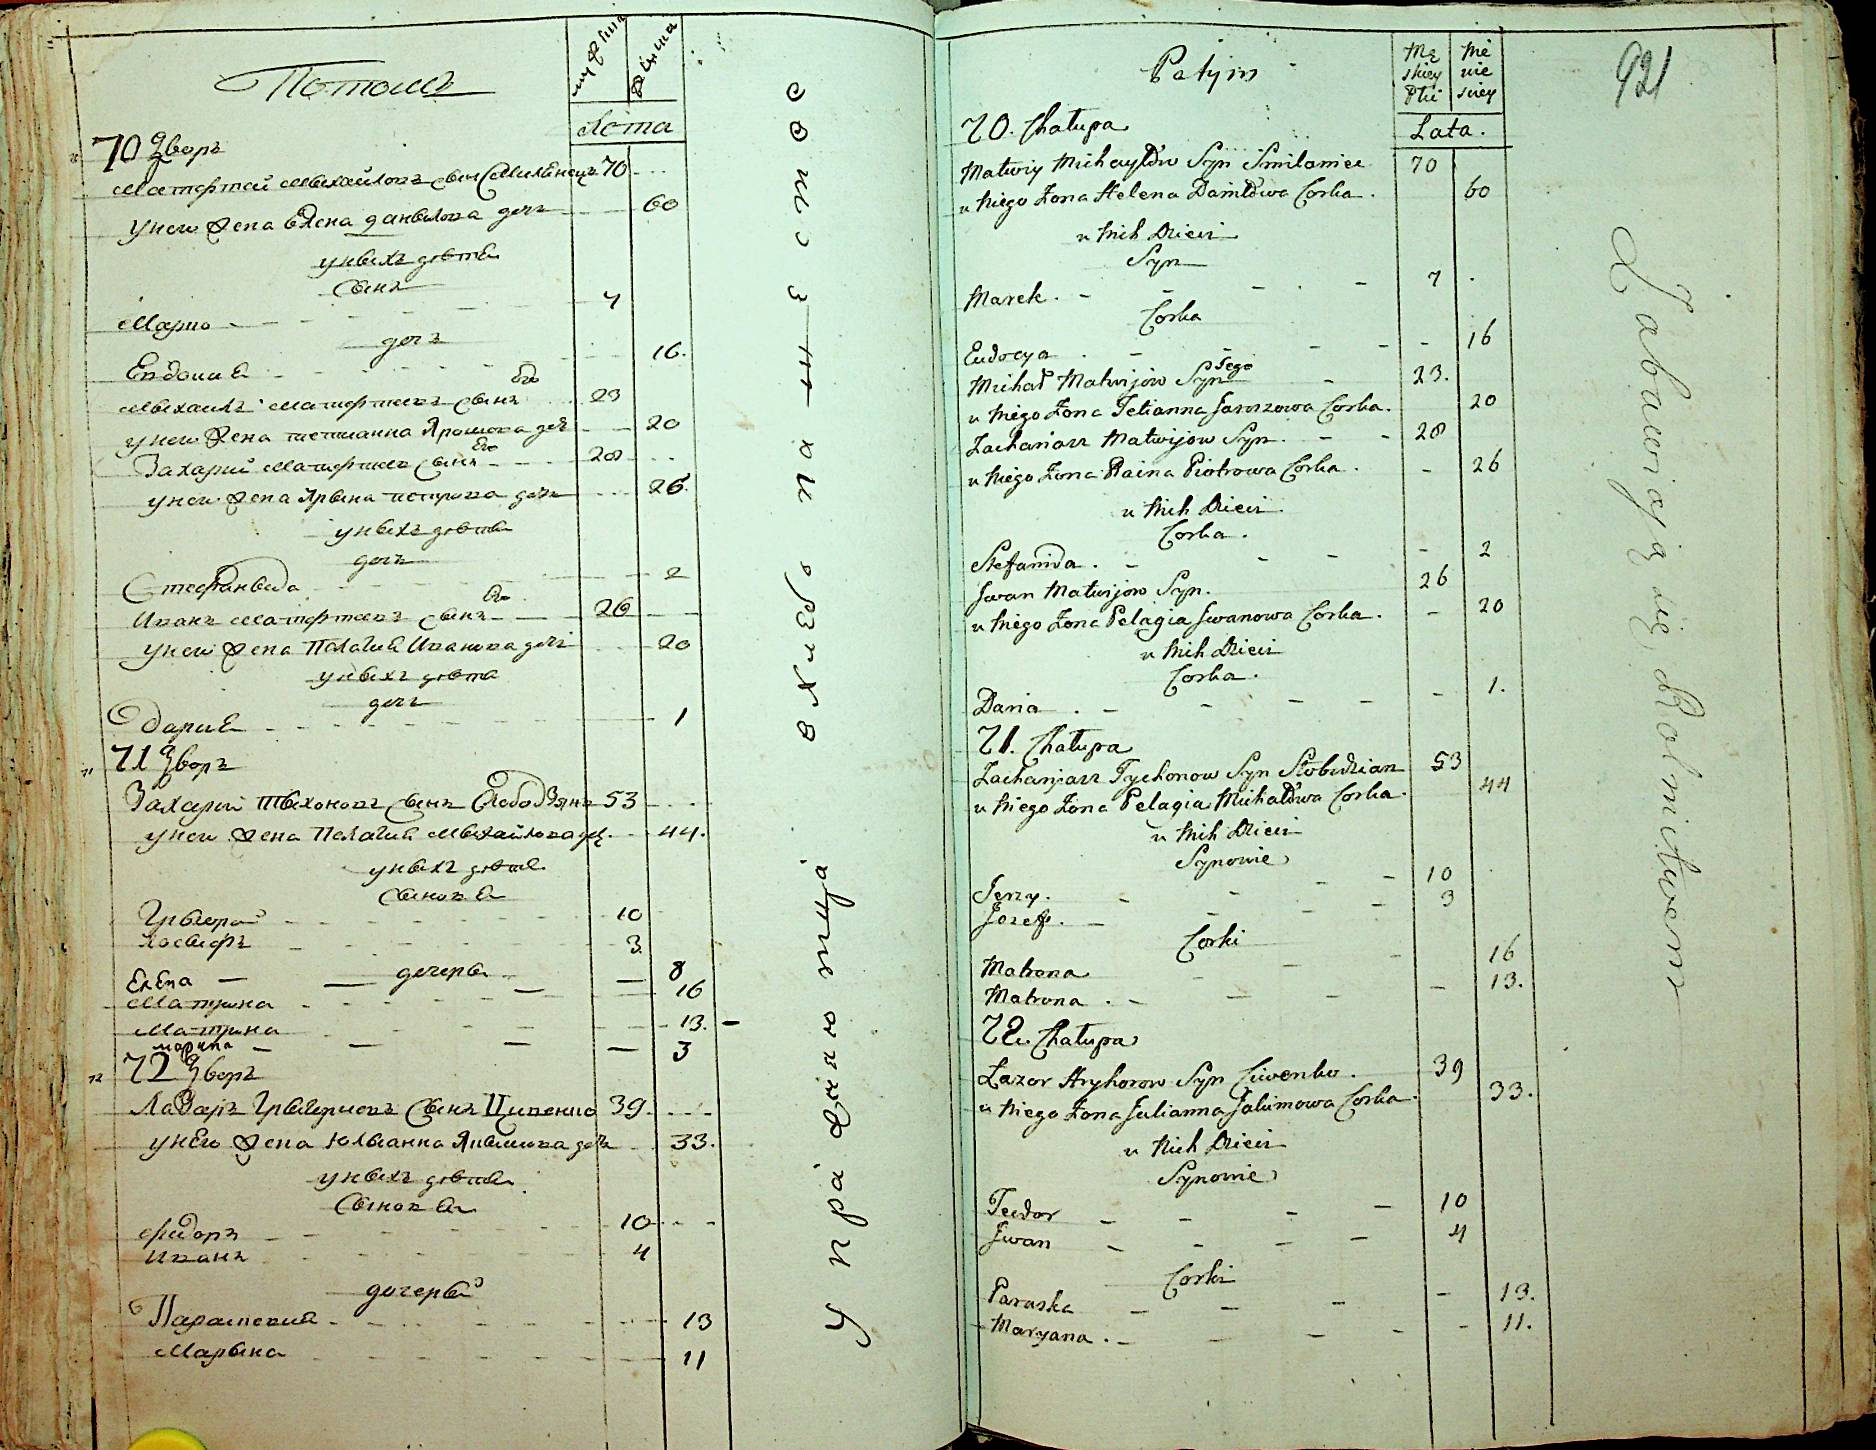 Потомъ
мужска
женска
Лѣта
70 Дворъ
Матфей Михайловъ сынъ Смилянецъ 70
у него жена Елена Данилова дочь 60
у нихъ дѣти
сынъ
Марко 7
дочь
Евдокия 16.
Михаилъ Матфеевъ сынъ его 23
у него жена Тетианна Ярошова дочь 20
Захарий Матфеевъ сынъ его 28
у него жена Ирина Петрова дочь 26
у нихъ дѣти
дочь
Стефанида 2
Иванъ Матфеевъ сынъ его 26
у него жена Пелагия Иванова дочь 20
у нихъ дѣти
дочь
Дария 1
71 Дворъ
Захарий Тихоновъ сынъ Слободзянъ 53
у него жена Пелагия Михайлова доч. 44.
у нихъ дѣти
сыновья
Григорий 10
Иосифъ 3.
дочери
Елена 8
Матрина 16
Матрина 13.
марина 3
72 Дворъ
Лазаръ Григориевъ сынъ Цивенко 39.
у него жена Юлианна Якимова дочь 33.
у нихъ дѣти
сыновья
Фидоръ 10
Иванъ 4
дочери
Параскевия 13
Марина 11
упражняютца в хлѣбо
Patym
Mę skiey Płci
Że nie skiey
Lata.
921
70. Chałupa
Matwiy Michayłow Syn Smilaniec 70
u niego Żona Helena Daniłowa Corka. 60
u nich Dzieci
Syn
Marek. 7
Corka
Eudocya 16
Michał Matwijow Syn Jego 23.
u niego Żona Tetianna Jaroszowa Corka. 20
Zachariasz Matwijow Syn. 28
u niego Żona Raina Piotrowa Corka. 26
u nich Dzieci.
Corka.
Stefanida. 2
Jwan Matwijow Syn. 26
u niego Żona Pelagia Jwanowa Corka. 20
u nich Dzieci
Corka.
Daria 1.
71. Chałupa
Zachariasz Tychonow Syn Słobodzian 53
u niego Żona Pelagia Michałowa Corka. 44
u nich Dzieci
Synowie
Jerzy. 10
Jozef. 3
Corki
Matrona 16
Matrona. 13.
72. Chałupa
Łazor Hryhorow Syn Ciwenko. 39
u niego Żona Julianna Jakimowa Corka. 33.
u nich Dzieci
Synowie
Teodor 10
Jwan 4
Corki
Paraska 13.
Maryana. 11.
Zabawiają się Rolnictwem